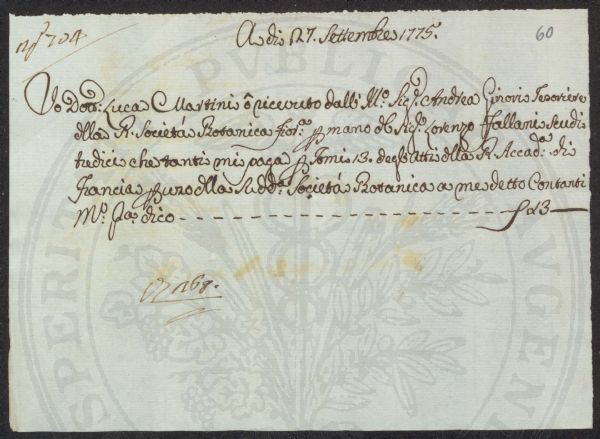 N.º 704
A di 27. Settembre 1775.
60
Io Dott: Luca Martini ò ricevuto dall'Ill.º Sig.r Andrea Ginori Tesoriere
della R. Società Botanica Fior.na p mano del Sig.r Lorenzo Fallani scudi
tredici che tanti mi paga p Tomi 13. degl'Atti della R. Accad.a di
Francia p uso della sudd.a Società Botanica a me detto Contanti
M.º P.a dico - - - - - - - - - - - - - - - - - - 13 —
168.
PUBLICO
PROSPERITATI
AUGENDAE